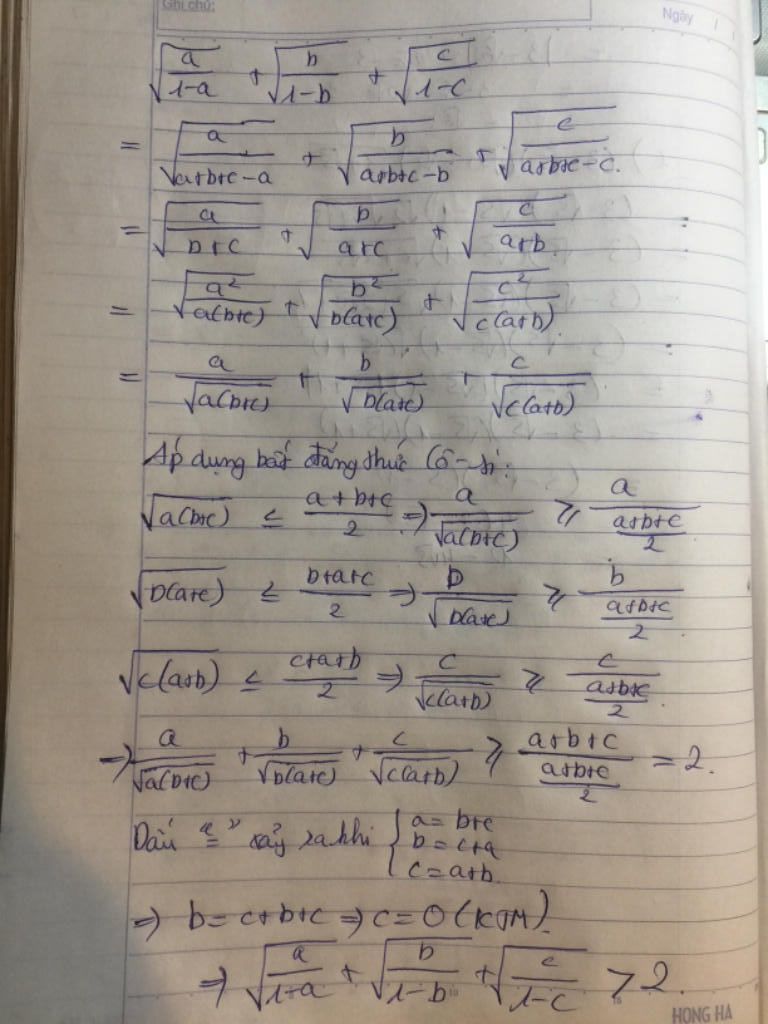 Ghi chú:
Ngày / /
√(a/(1-a)) + √(b/(1-b)) + √(c/(1-c))
= √(a/(a+b+c-a)) + √(b/(a+b+c-b)) + √(c/(a+b+c-c)).
= √(a/(b+c)) + √(b/(a+c)) + √(c/(a+b))
= √(a²/(a(b+c))) + √(b²/(b(a+c))) + √(c²/(c(a+b)))
= a/√(a(b+c)) + b/√(b(a+c)) + c/√(c(a+b))
Áp dụng bất đẳng thức Cô-si:
√(a(b+c)) ≤ (a+b+c)/2 ⇒ a/√(a(b+c)) ≥ a/((a+b+c)/2)
√(b(a+c)) ≤ (b+a+c)/2 ⇒ b/√(b(a+c)) ≥ b/((a+b+c)/2)
√(c(a+b)) ≤ (c+a+b)/2 ⇒ c/√(c(a+b)) ≥ c/((a+b+c)/2)
⇒ a/√(a(b+c)) + b/√(b(a+c)) + c/√(c(a+b)) ≥ (a+b+c)/((a+b+c)/2) = 2.
Dấu "=" xảy ra khi { a = b+c
b = c+a
c = a+b.
⇒ b = c+b+c ⇒ c = 0 (KTM).
⇒ √(a/(1-a)) + √(b/(1-b)) + √(c/(1-c)) > 2.
HONG HA